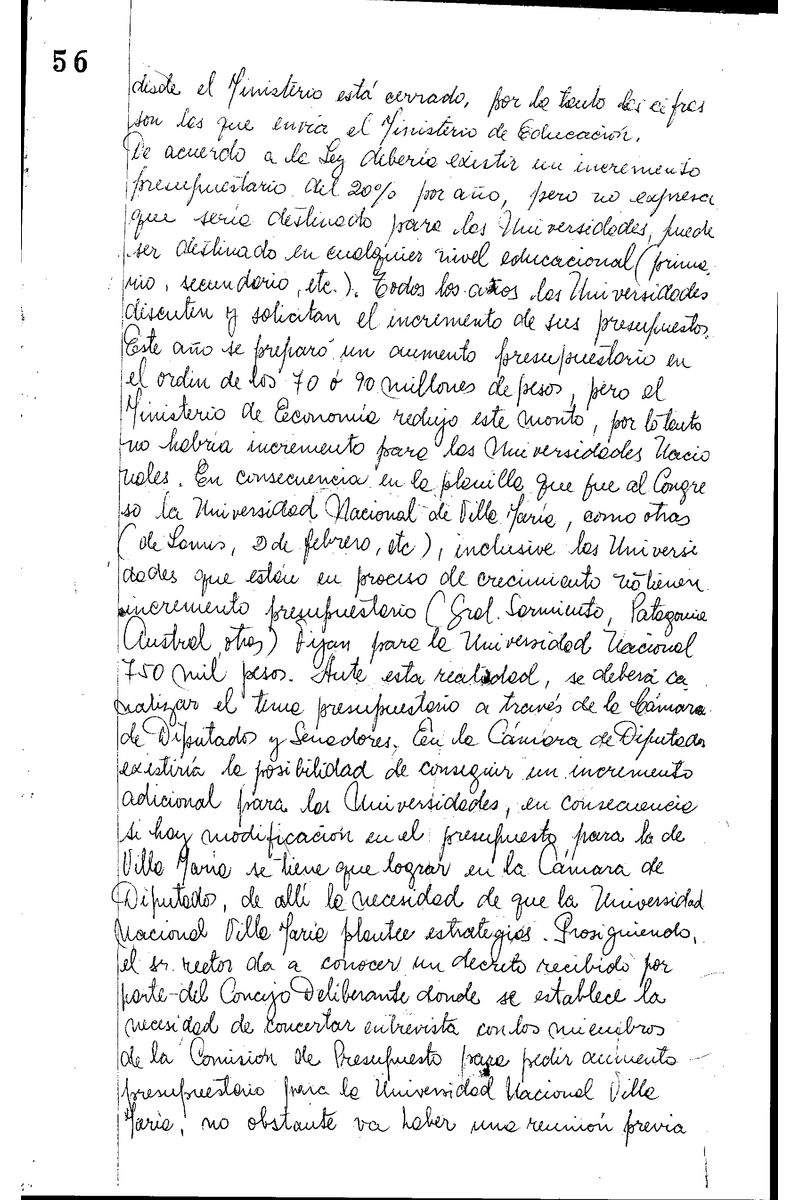 56
desde el Ministerio está cerrado, por lo tanto las cifras
son las que envía el Ministerio de Educación.
De acuerdo a la Ley debería existir un incremento
presupuestario del 20% por año, pero no expresa
que sería destinado para las Universidades, puede
ser destinado en cualquier nivel educacional (prima
rio, secundario, etc.). Todos los años las Universidades
discuten y solicitan el incremento de sus presupuestos.
Este año se preparó un aumento presupuestario en
el orden de los 70 ó 90 millones de pesos, pero el
Ministerio de Economía redujo este monto, por lo tanto
no habría incremento para las Universidades Nacio
nales. En consecuencia en la planilla que fue al Congre
so la Universidad Nacional de Villa María, como otras
(de Lanús, 3 de febrero, etc), inclusive las Universi
dades que están en proceso de crecimiento no tienen
incremento presupuestario (Gral. Sarmiento, Patagonia
Austral, otras) Fijan para la Universidad Nacional
750 mil pesos. Ante esta realidad, se deberá ca
nalizar el tema presupuestario a través de la Cámara
de Diputados y Senadores. En la Cámara de Diputados
existiría la posibilidad de conseguir un incremento
adicional para las Universidades, en consecuencia
si hay modificación en el presupuesto para la de
Villa María se tiene que lograr en la Cámara de
Diputados, de allí la necesidad de que la Universidad
Nacional Villa María plantee estrategias. Prosiguiendo,
el sr. rector da a conocer un decreto recibido por
parte del Concejo Deliberante donde se establece la
necesidad de concertar entrevista con los miembros
de la Comisión de Presupuesto para pedir aumento
presupuestario para la Universidad Nacional Villa
María, no obstante va haber una reunión previa